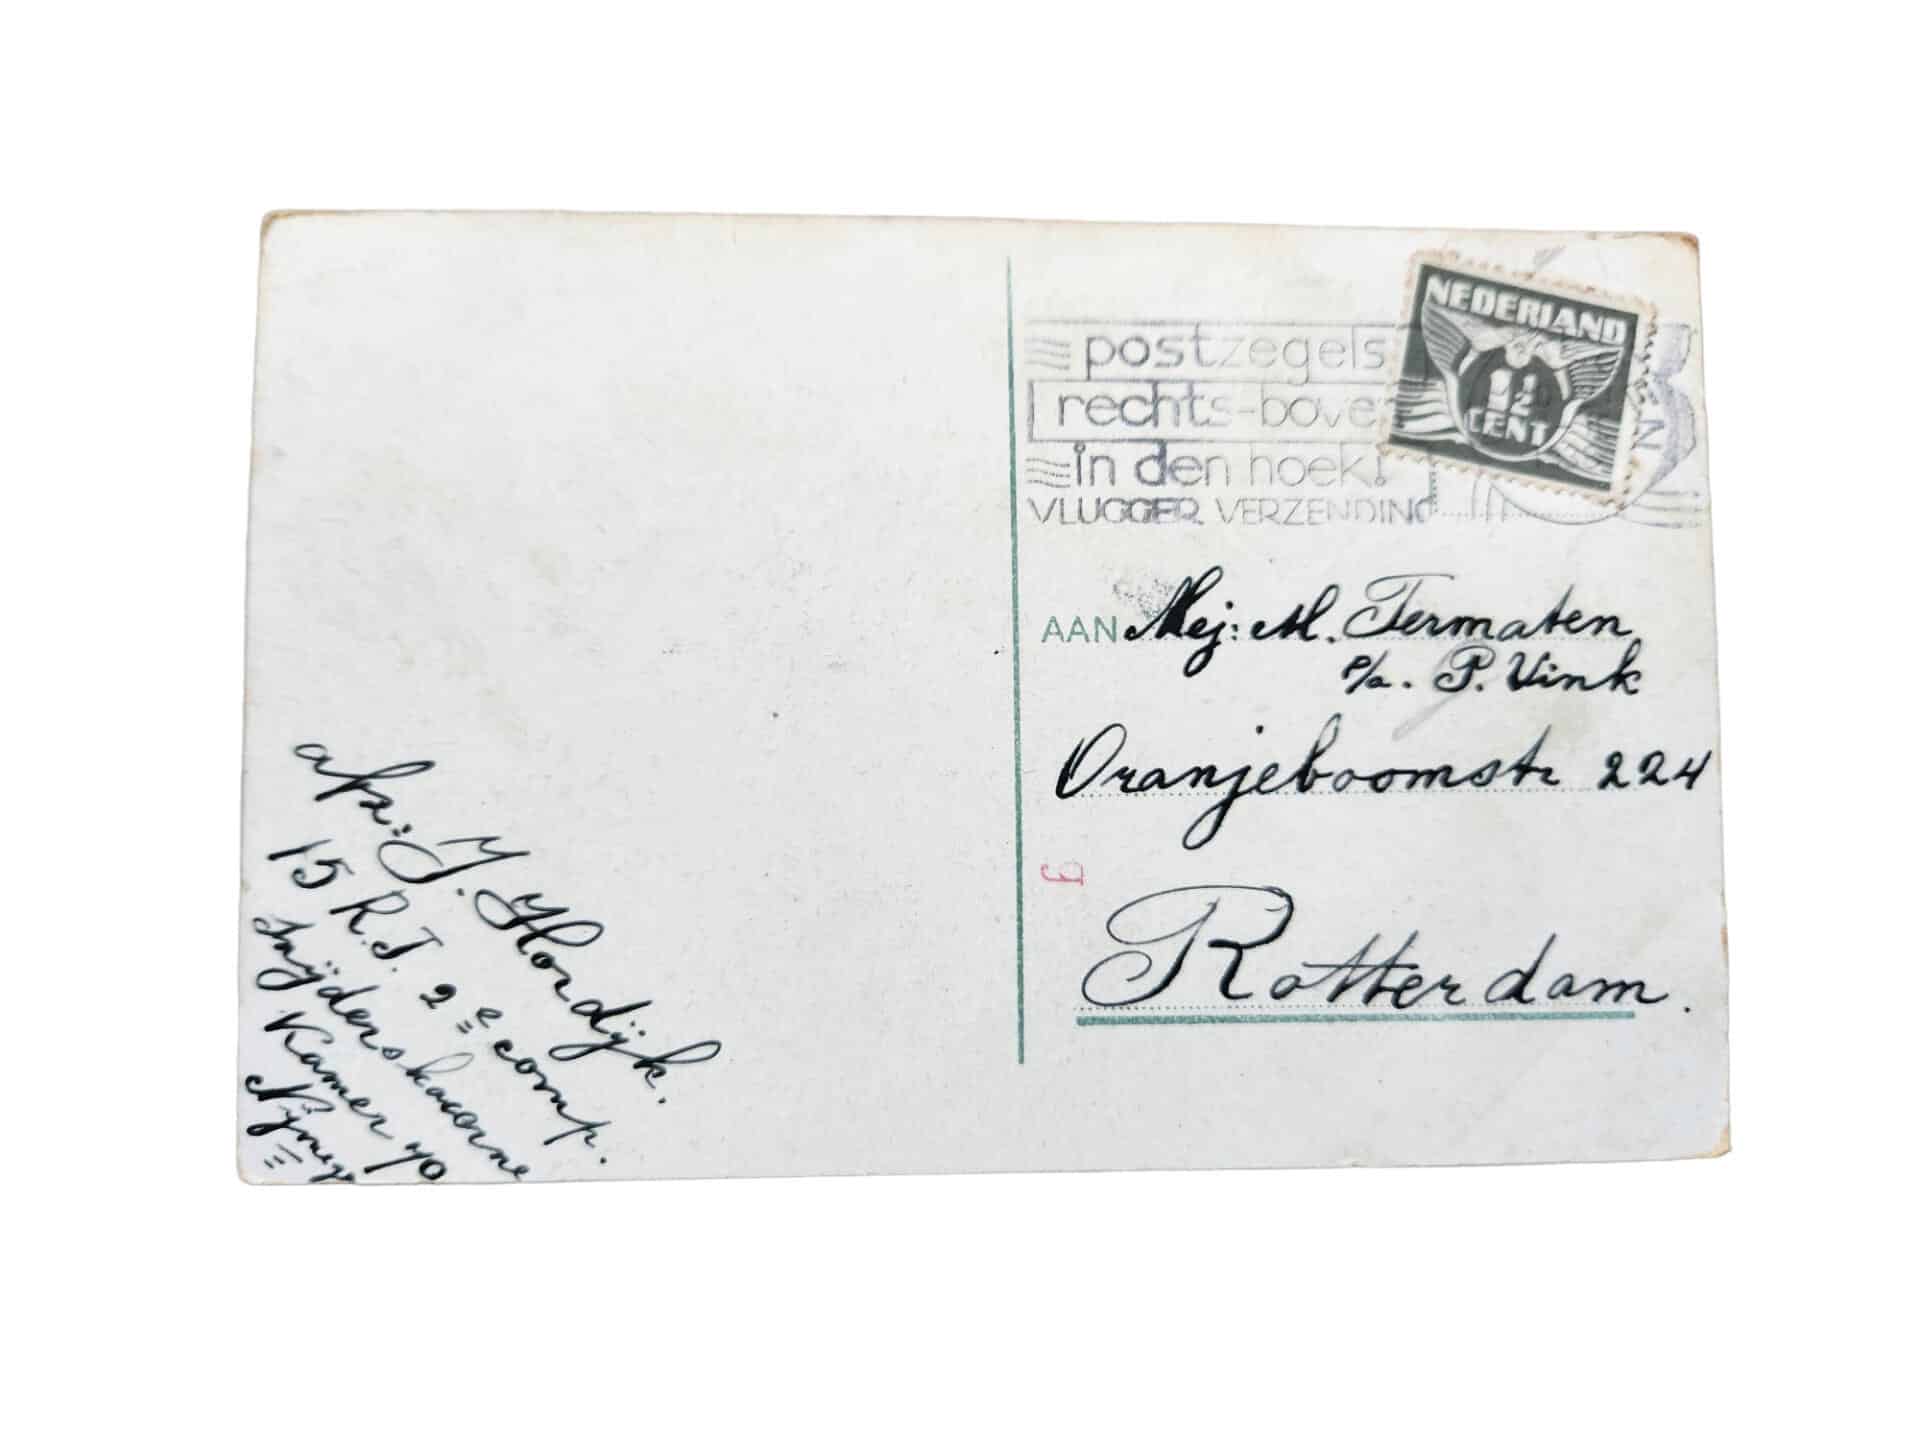 NEDERLAND
1½
CENT
postzegels
rechts-boven
in den hoek!
VLUGGER VERZENDING
AAN Mej: M. Termaten
p/a. P. Vink
Oranjeboomstr 224
Rotterdam.
afz: J. Hordijk.
15 R.I. 2e comp.
Snijderskazerne
Kamer 70